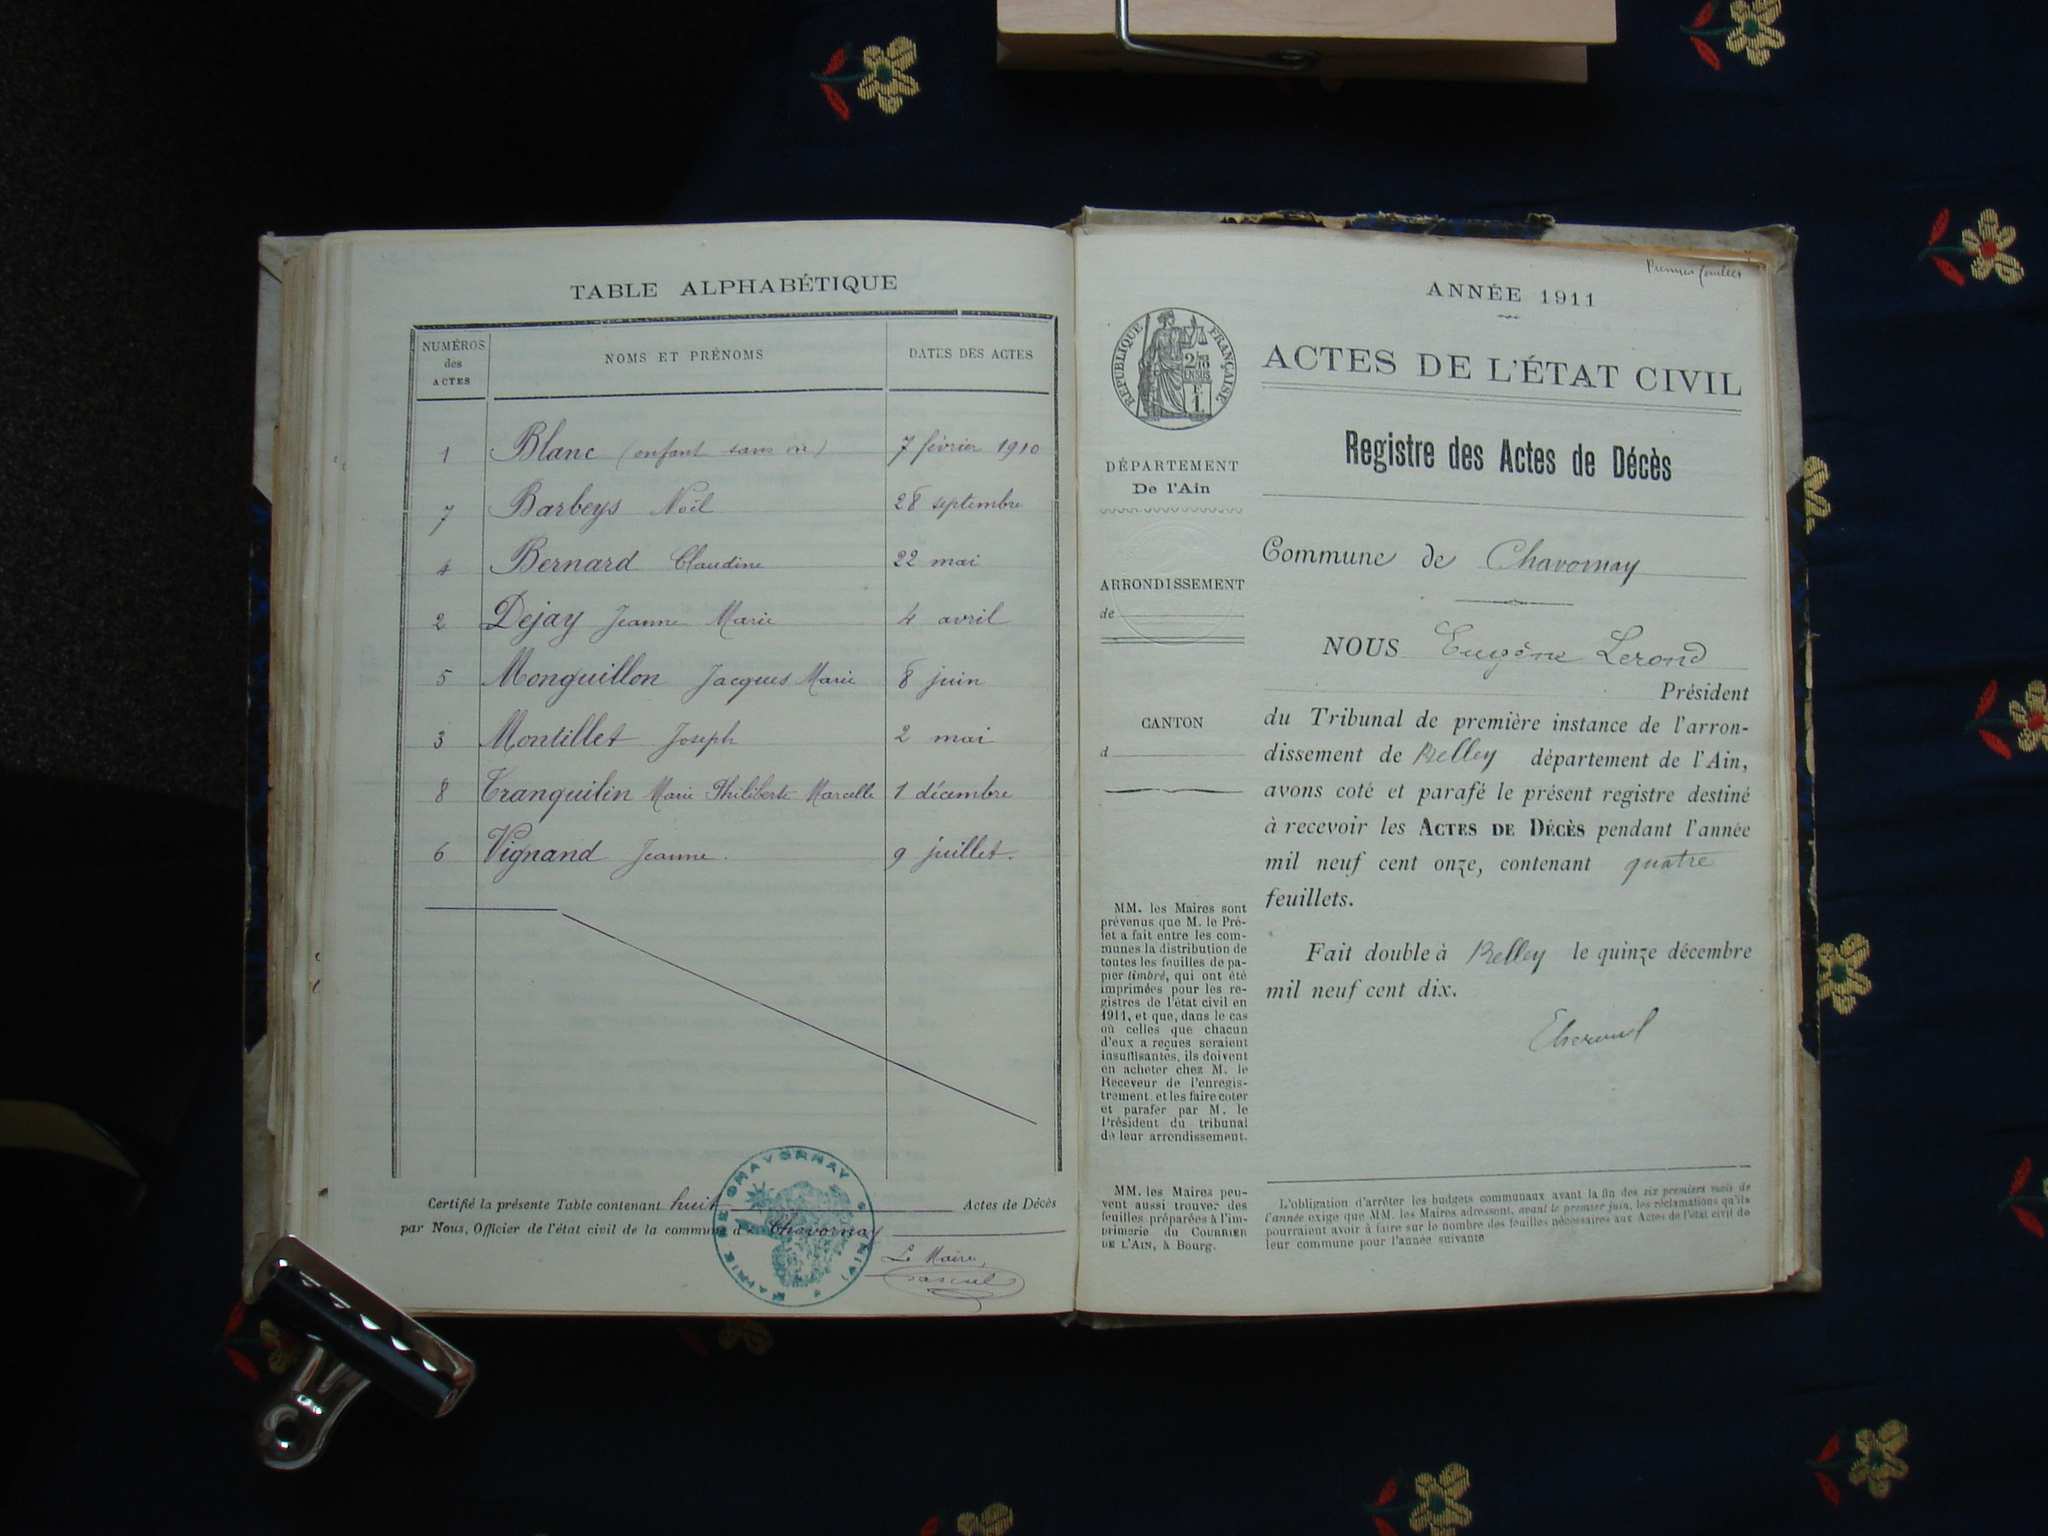 TABLE ALPHABÉTIQUE
NUMÉROS des ACTES NOMS ET PRÉNOMS DATES DES ACTES
1 Blanc (enfant sans vie) 7 février 1910
7 Barbeys Noël 28 septembre
4 Bernard Claudine 22 mai
2 Dejay Jeanne Marie 4 avril
5 Monguillon Jacques Marie 8 juin
3 Montillet Joseph 2 mai
8 Tranquilin Marie Philiberte Marcelle 1 décembre
6 Vignand Jeanne. 9 juillet.
Certifié la présente Table contenant huit Actes de Décès
par Nous, Officier de l'état civil de la commune d Chavornay
Le Maire,
MAIRIE DE CHAVORNAY (AIN)
Premier feuillet
ANNÉE 1911
RÉPUBLIQUE FRANÇAISE
ACTES DE L'ÉTAT CIVIL
Registre des Actes de Décès
DÉPARTEMENT
De l'Ain
ARRONDISSEMENT
de
CANTON
d
MM. les Maires sont
prévenus que M. le Pré-
fet a fait entre les com-
munes la distribution de
toutes les feuilles de pa-
pier timbré, qui ont été
imprimées pour les re-
gistres de l'état civil en
1911, et que, dans le cas
où celles que chacun
d'eux a reçues seraient
insuffisantes, ils doivent
en acheter chez M. le
Receveur de l'enregis-
trement et les faire coter
et parafer par M. le
Président du tribunal
de leur arrondissement.
MM. les Maires peu-
vent aussi trouver des
feuilles préparées à l'im-
primerie du COURRIER
DE L'AIN, à Bourg.
Commune de Chavornay
NOUS Eugène Lerond
Président
du Tribunal de première instance de l'arron-
dissement de Belley département de l'Ain,
avons coté et parafé le présent registre destiné
à recevoir les ACTES DE DÉCÈS pendant l'année
mil neuf cent onze, contenant quatre
feuillets.
Fait double à Belley le quinze décembre
mil neuf cent dix.
L'obligation d'arrêter les budgets communaux avant la fin des six premiers mois de
l'année exige que MM. les Maires adressent, avant le premier juin, les réclamations qu'ils
pourraient avoir à faire sur le nombre des feuilles nécessaires aux Actes de l'état civil de
leur commune pour l'année suivante